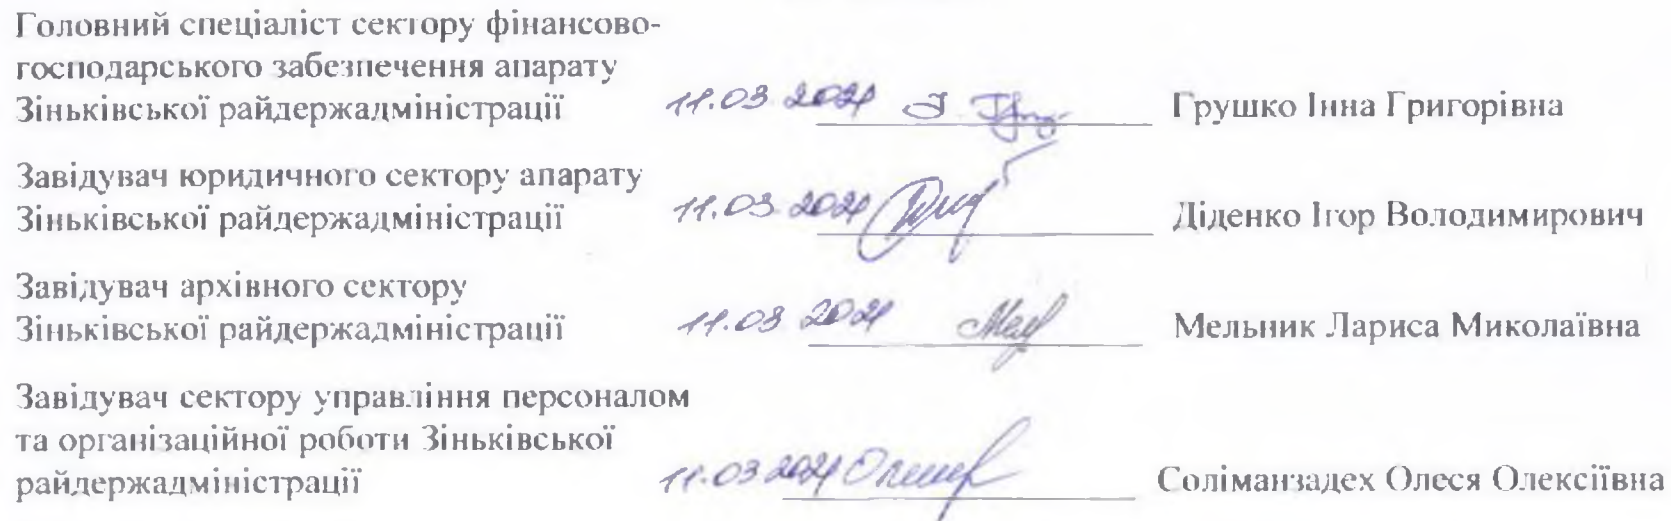 Головний спеціаліст сектору фінансово-
господарського забезпечення апарату
Зіньківської райдержадміністрації 11.03 2021 Грушко Інна Григорівна
Завідувач юридичного сектору апарату
Зіньківської райдержадміністрації 11.03 2021 Діденко Ігор Володимирович
Завідувач архівного сектору
Зіньківської райдержадміністрації 11.03 2021 Мельник Лариса Миколаївна
Завідувач сектору управління персоналом
та організаційної роботи Зіньківської
райдержадміністрації 11.03 2021 Соліманзадех Олеся Олексіївна